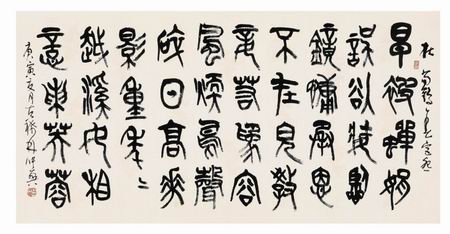 杜荀鶴春宮怨
早被嬋娟
誤欲裝臨
鏡慵承恩
不在皃教
妾若爲容
風煖鳥聲
碎日高花
影重年〻
越溪女相
意采芙蓉
庚寅亥月古稀